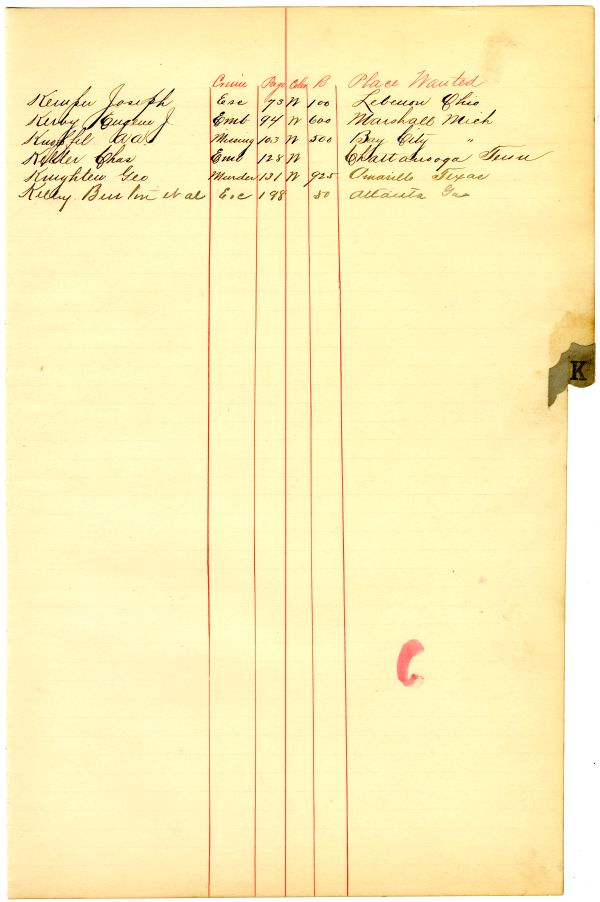 Crime Page Color R Place Wanted
Joseph Esc 73 W 100 Lebenon Ohio
Kerby Eugene J Emb 94 W 600 Marshall Mich
103 W 500 Bay City "
Chas Emb 128 W Chattanooga Tenn
Knighten Geo Murder 131 W 925 Amarillo Texas
Kelly Burton et al Esc 198 50 Atlanta Ga
K